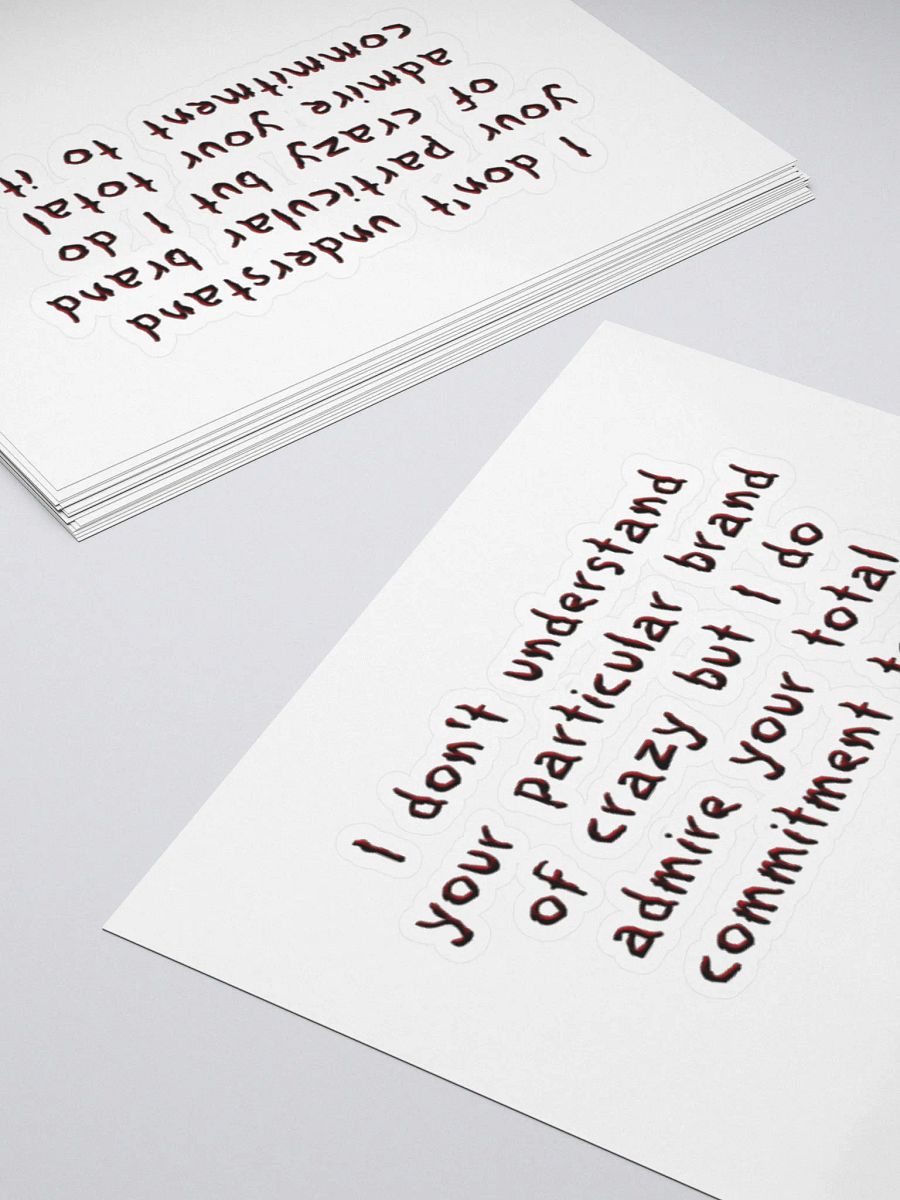 I don't understand
your particular brand
of crazy but I do
admire your total
commitment to it
I don't understand
your particular brand
of crazy but I do
admire your total
commitment